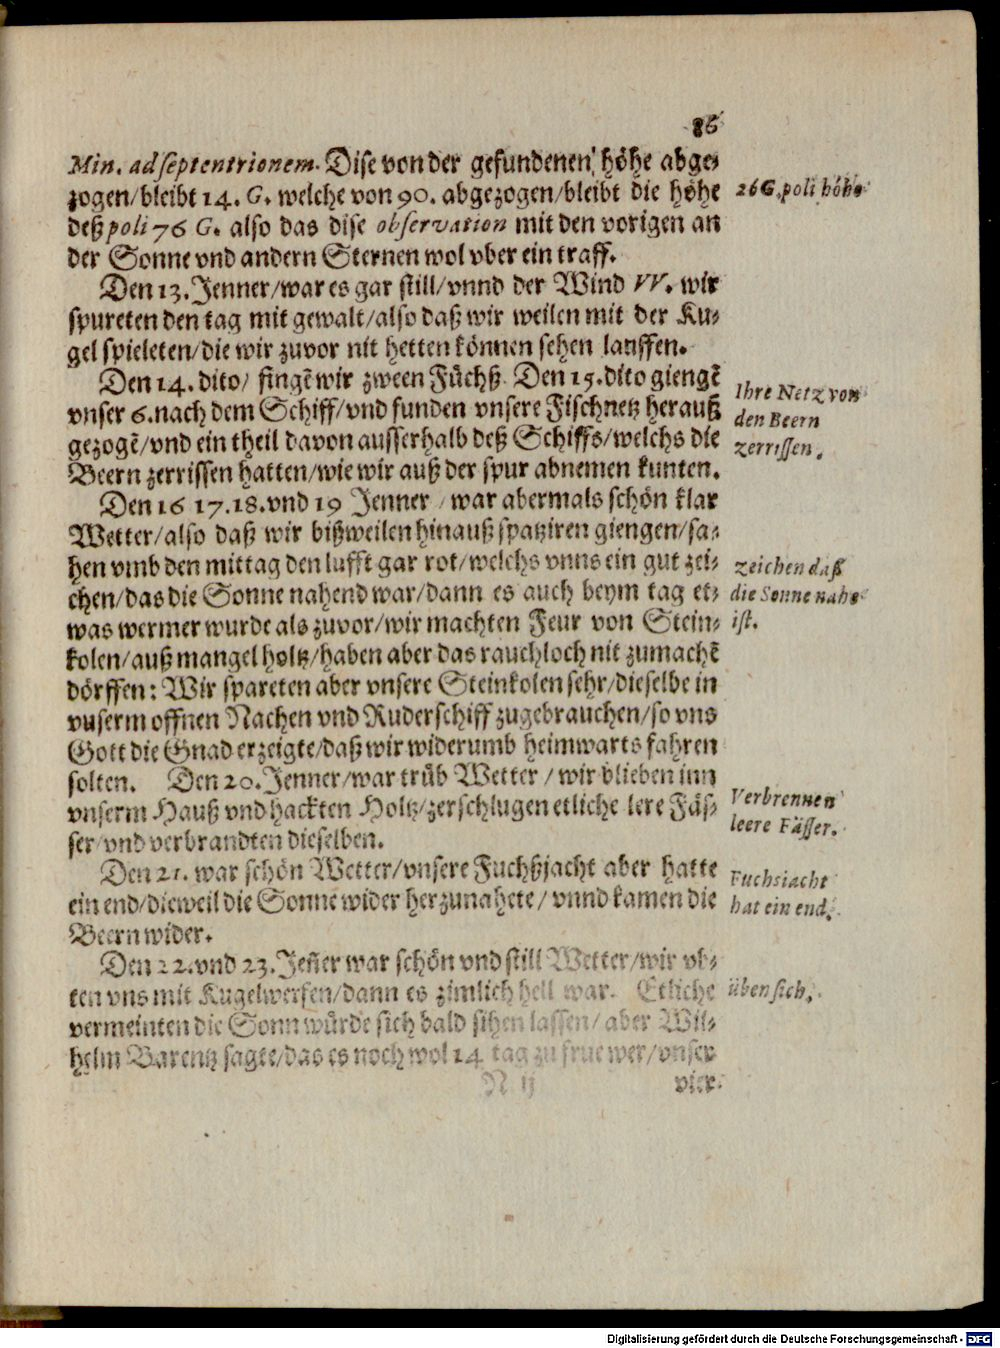 86
Min. ad septentrionem. Dise von der gefundenen höhe abge-
zogen/bleibt 14. G. welche von 90. abgezogen/bleibt die höhe
deß poli 76 G. also das dise observation mit den vorigen an
der Sonne vnd andern Sternen wol vber ein traff.
26 G. poli höhe
Den 13. Jenner/war es gar still/vnnd der Wind VV. wir
spureten den tag mit gewalt/also daß wir weilen mit der Ku-
gel spieleten/die wir zuvor nit hetten können sehen lauffen.
Den 14. dito/ fingẽ wir zween Füchß. Den 15. dito giengẽ
vnser 6. nach dem Schiff/vnd funden vnsere Fischnetz herauß
gezogẽ/vnd ein theil davon ausserhalb deß Schiffs/welchs die
Beern zerrissen hatten/wie wir auß der spur abnemen kunten.
Ihre Netz von
den Beern
zerrissen.
Den 16 17. 18. vnd 19 Jenner / war abermals schön klar
Wetter/also daß wir bißweilen hinauß spatziren giengen/sa-
hen vmb den mittag den lufft gar rot/welchs vnns ein gut zei-
chen/das die Sonne nahend war/dann es auch beym tag et-
was wermer wurde als zuvor/wir machten Feur von Stein-
kolen/auß mangel holtz/haben aber das rauchloch nit zumachẽ
dörffen: Wir spareten aber vnsere Steinkolen sehr/dieselbe in
vuserm offnen Nachen vnd Ruderschiff zugebrauchen/so vns
Gott die Gnad erzeigte/daß wir widerumb heimwarts fahren
solten. Den 20. Jenner/war trüb Wetter / wir blieben inn
vnserm Hauß vnd hackten Holtz/zerschlugen etliche lere Fäs-
ser/vnd verbrandten dieselben.
zeichen daß
die Sonne nahe
ist.
Verbrennen
leere Fässer.
Den 21. war schön Wetter/vnsere Fuchßjacht aber hatte
ein end/dieweil die Sonne wider herzunahete/ vnnd kamen die
Beern wider.
Fuchsiacht
hat ein end.
Den 22. vnd 23. Jeñer war schön vnd still Wetter/wir vb-
ten vns mit Kugelwerfen/dann es zimlich hell war. Etliche
vermeinten die Sonn würde sich bald sihen lassen/ aber Wil-
helm Barentz sagte/das es noch wol 14 tag zu frue wer/vnser
üben sich.
N ij
vier
Digitalisierung gefördert durch die Deutsche Forschungsgemeinschaft - DFG